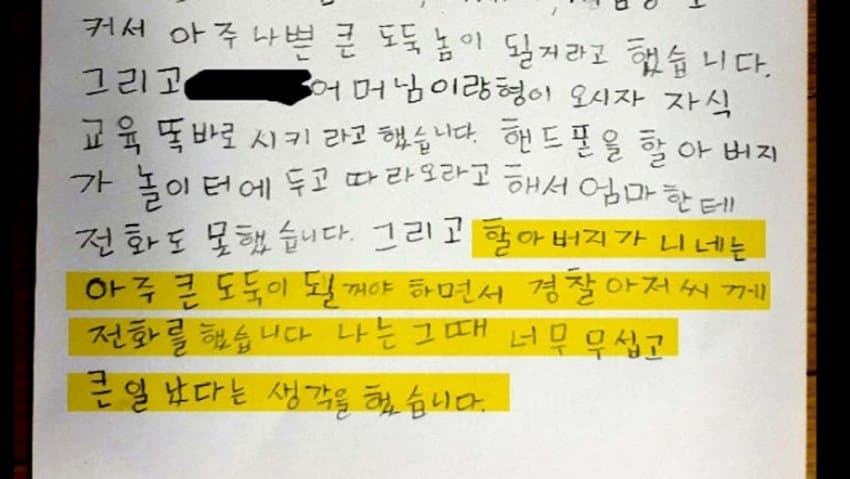 커서 아주 나쁜 큰 도둑놈이 될거라고 했습니다.
그리고 어머님이랑형이 오시자 자식
교육 똑바로 시키라고 했습니다. 핸드폰을 할아버지
가 놀이터에 두고 따라오라고 해서 엄마한테
전화도 못했습니다. 그리고 할아버지가 니네는
아주 큰 도둑이 될꺼야 하면서 경찰아저씨께
전화를 했습니다 나는 그때 너무 무섭고
큰일 났다는 생각을 했습니다.